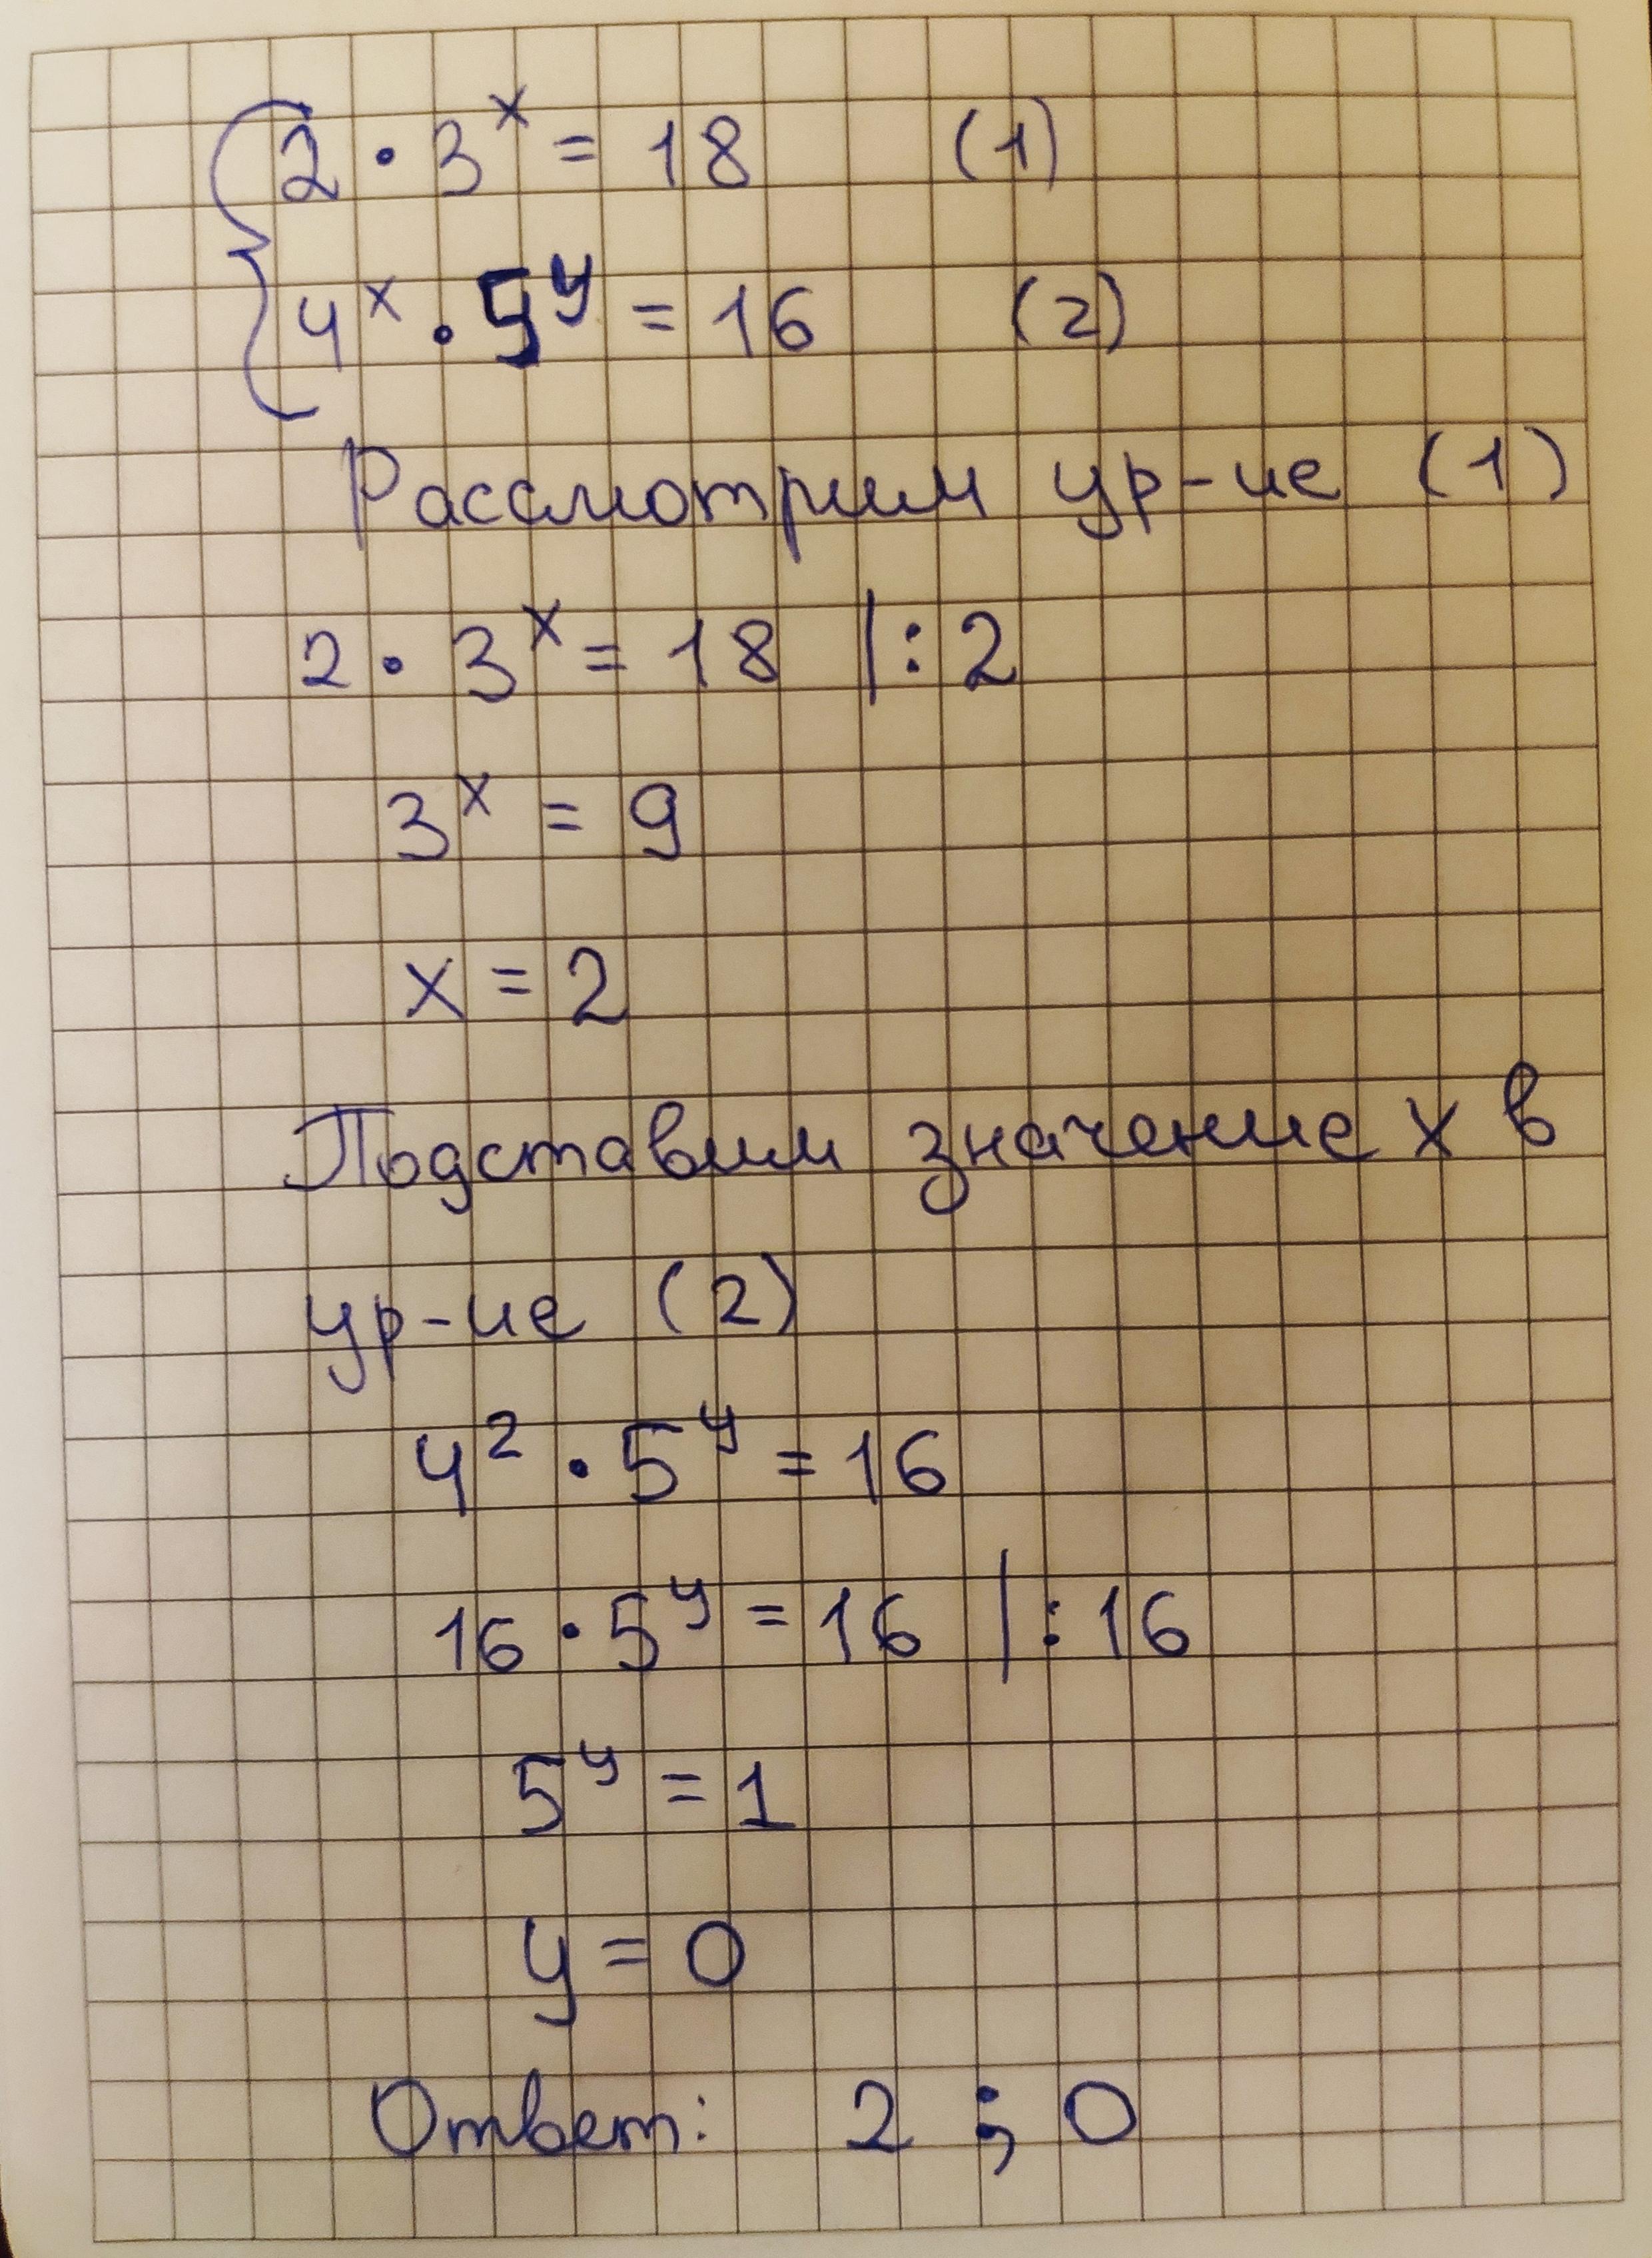 2 · 3^x = 18 (1)
4^x · 5^y = 16 (2)
Рассмотрим ур-ие (1)
2 · 3^x = 18 | : 2
3^x = 9
x = 2
Подставим значение x в
ур-ие (2)
4^2 · 5^y = 16
16 · 5^y = 16 | : 16
5^y = 1
y = 0
Ответ: 2 ; 0